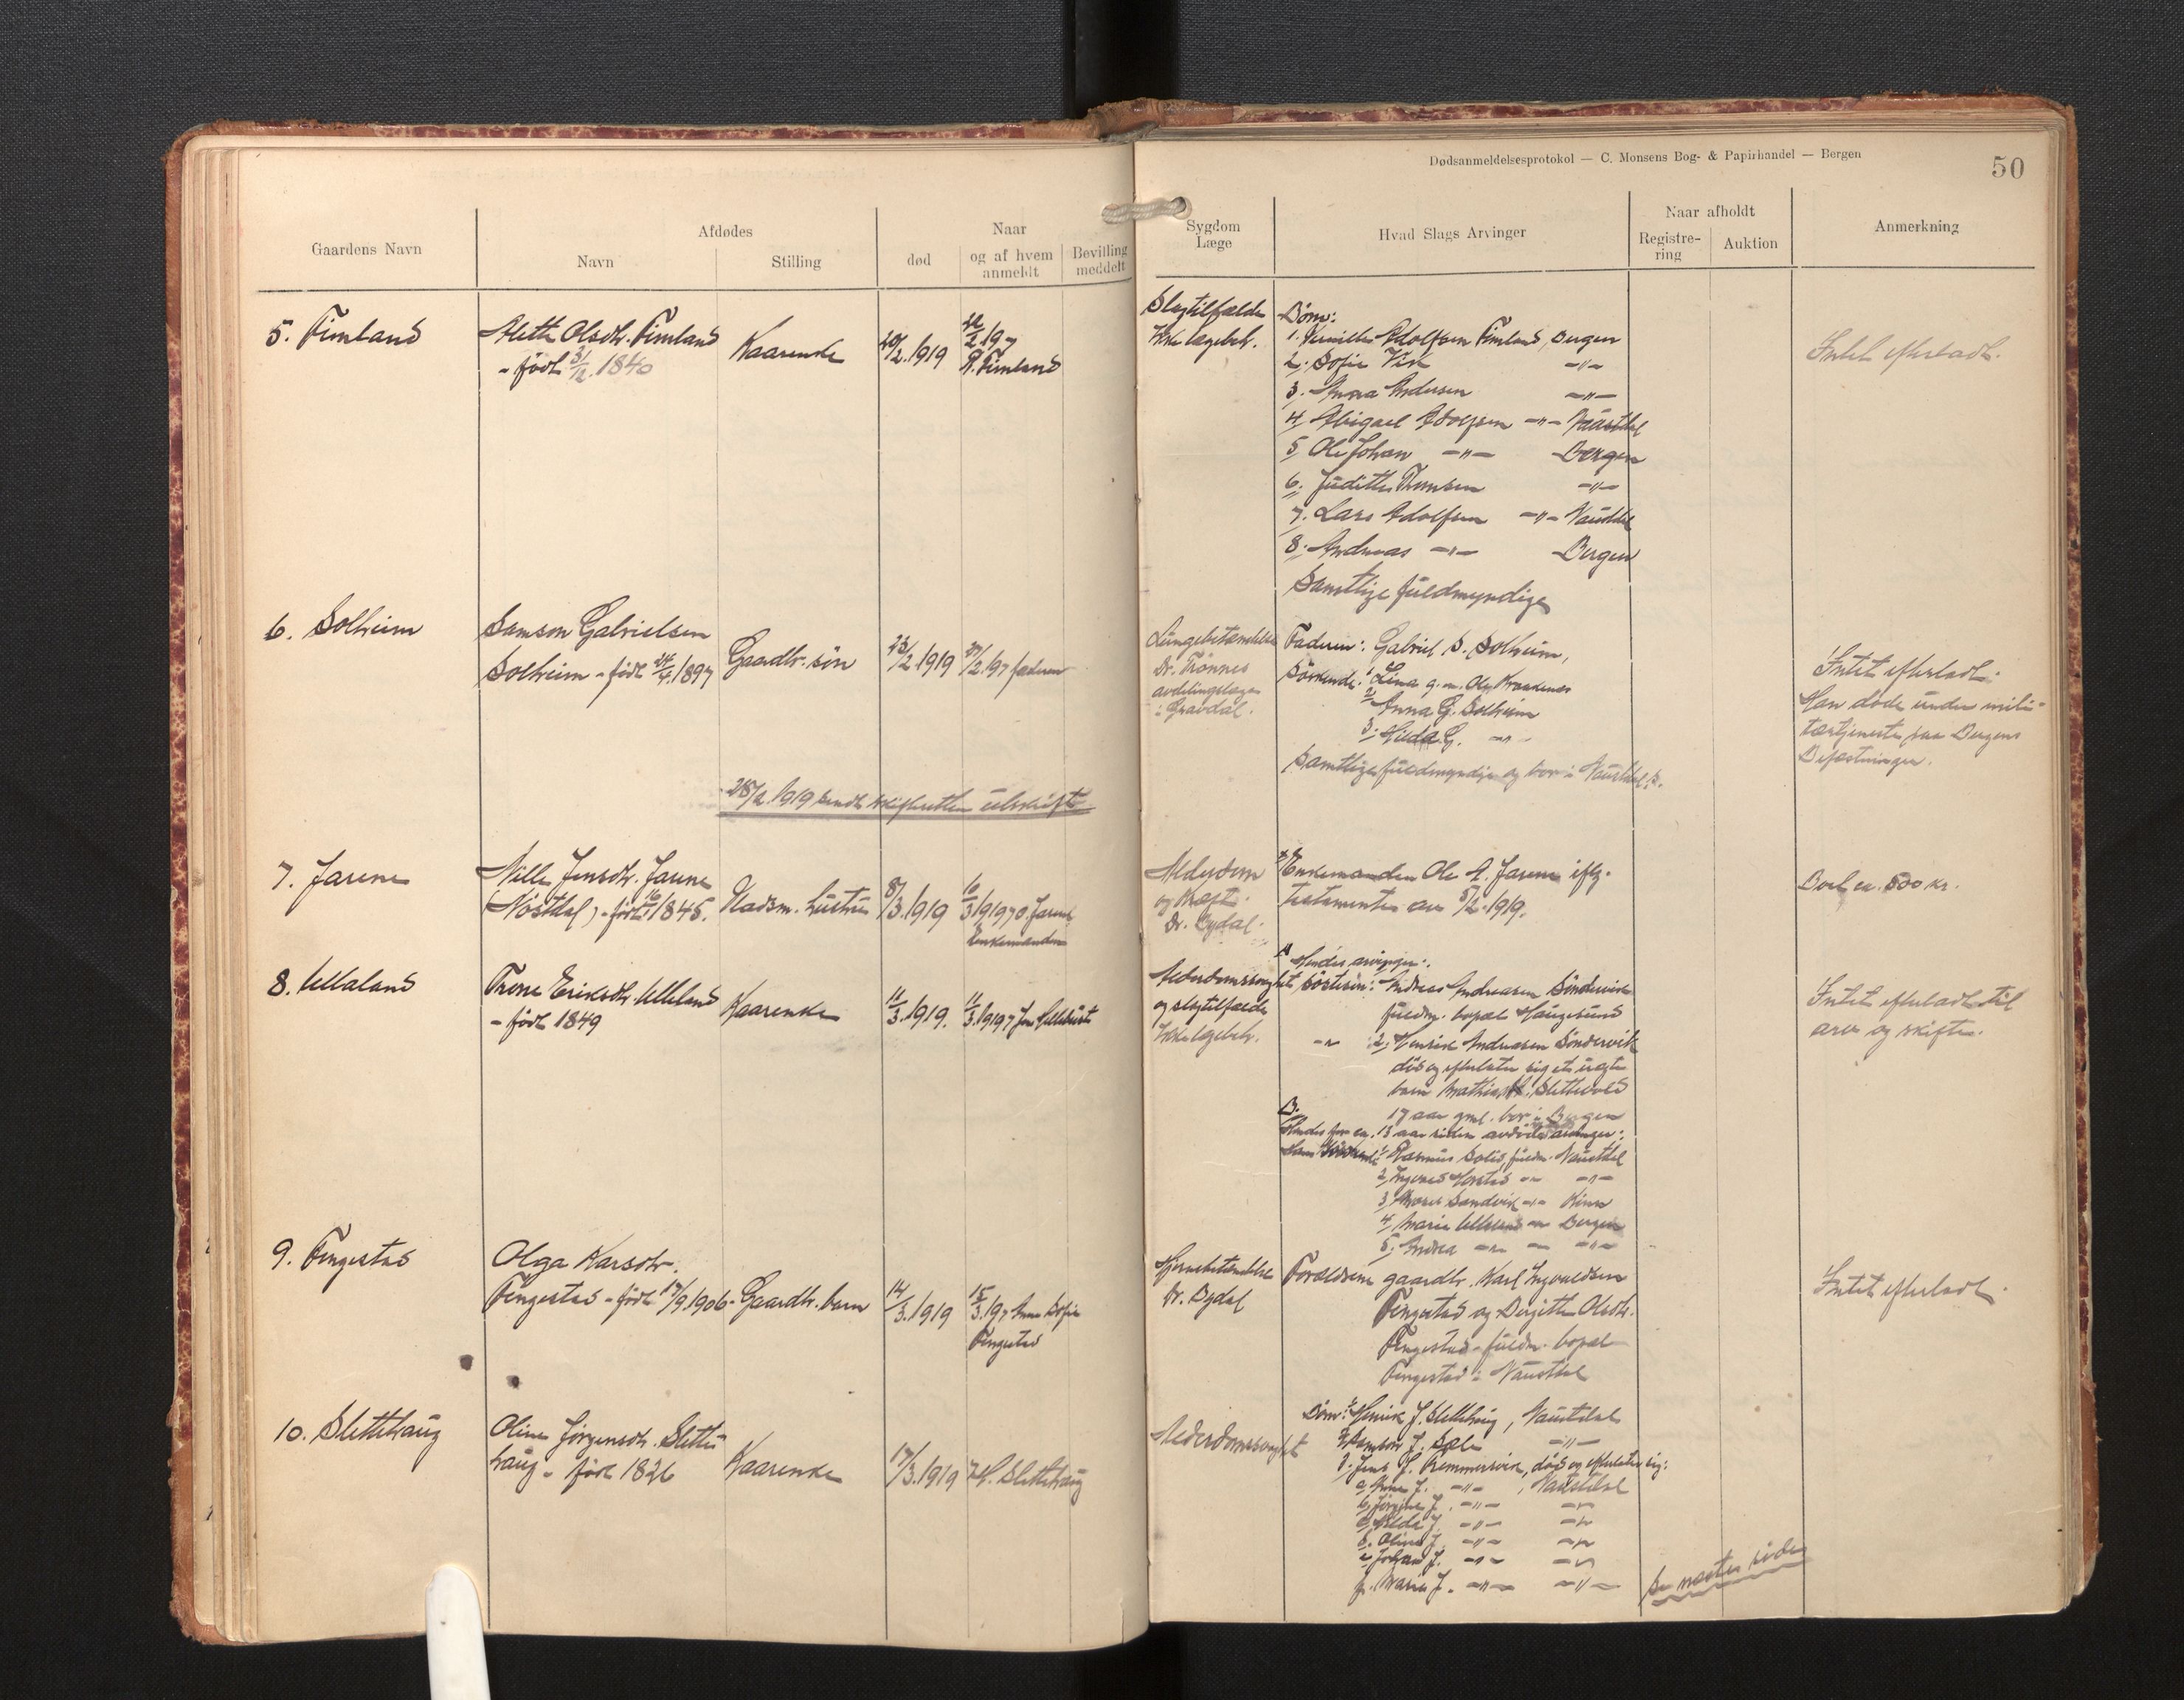 Dødsanmeldelsesprotokol — C. Monsens Bog- & Papirhandel — Bergen
50
Gaardens Navn
Afdødes
Navn
Stilling
Naar
død
og af hvem anmeldt
Bevilling meddelt
Sygdom
Læge
Hvad Slags Arvinger
Naar afholdt
Registre-
ring
Auktion
Anmerkning
5. Fimland
Alette Olsdtr. Fimland
- født 31/12. 1840
Kaarenke
20/2.1919
22/2 19 7
R. Fimland
Slagtilfælde
Ikke lægebeh.
Børn:
1. Adolfsen Fimland, Bergen
2. Sofie Vik -"-
3. Anna Andersen -"-
4, Abigael Adolfsen -"- Naustdal
5, Ole Johan -"- Bergen
6. Judithe Thomsen -"-
7. Lars Adolfsen -"- Naustdal
8. Andreas -"- Bergen
Samtlige fuldmyndige
Intet efterladt.
6. Solheim
Samson Gabrielsen
Solheim - født 24/4.1897
Gaardbr. søn
23/2 1919
27/2.19 7 faderen
Lungebetændelse
Dr. Trönnes
avdelingslæge
i Gravdal.
Faderen: Gabriel S. Solheim,
Søskende: 1 Lina g. m. Ole Kraakenes
2 Anna G. Solheim
3. Hilda G. -"-
Samtlige fuldmyndige og bor i Naustdal s.
Intet efterladt.
Han døde under mili-
tærtjeneste paa Bergens
Befæstninger.
28/2 1919 sendt skifteretten utskrift
7. Jarene
Nille Jensdtr. Jarene
(Naustdal) - født 1845.
Husm. hustru
8/3.1919
10/3 1919 7 O. Jarene
Enkemanden
Alderdom
og Kræft.
Dr. Bydal.
Enkemanden Ole A. Jarene iflg.
testamente av 5/2.1919.
Boet ca. 500 kr.
8. Ullaland
Trone Eriksdtr. Ulleland
- født 1849
Kaarenke
11/3.1919.
11/3.1919 7
Alderdomssvaghet
og slagtilfælde
Ikke lægebeh.
A Hendes arvinger:
søstersøn: Andreas Andreasen Söndervik
fuldm. bopæl Haugesund
-"- 2, Henrik Andreasen Söndervik
død og efterlater sig et uegte
barn Mathias H. Slettevold
17 aar gml. bor i Bergen
B.
Hendes for ca. 13 aar siden avdøde arvinger:
Hans Søskende 1, Rasmus Solis, fuldm. Naustdal
2, -"- -"-
3, Sandvik -"- Kinn
4, Marie Ulleland -"- Bergen
5, Andrea -"- -"- -"-
Intet efterladt til
arv og skifte.
9. Fengestad
Olga Karsdtr.
Fengestad - født 17/9.1906.
Gaardbr. barn
14/3.1919
15/3.19 7 Anna Sofie
Fengestad
Hjernebetændelse
Dr. Bydal
Forældrene gaardbr. Karl Ingvaldsen
Fengestad og Birgitte Olsdtr.
Fengestad - fuldm. bopæl
Fengestad i Naustdal
Intet efterladt.
10. Slettehaug
Oline Jörgensdtr. Slette
haug - født 1826
Kaarenke
17/3.1919
7 H. Slettehaug
Alderdomssvaghet
Børn: 1, Henrik J. Slettehaug, Naustdal
2, Samson J. Sæle -"-
3. Jens J. Remmersvik, død og efterlater sig:
a, Anna J. -"- , Naustdal
b, Jörgine J. -"- -"-
c, Hilda J. -"- -"-
d. Olina J. -"- -"-
e, Johan J. -"- -"-
f. Marie J. -"- -"-
Se næste side